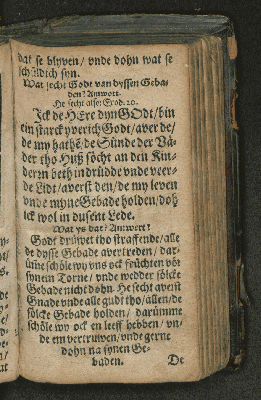 dat se blyven / vnde dohn wat se
schüldich syn.
Wat secht Godt van dyssen Geba-
den? Antwort.
He secht also: Exod. 20.
Ick de HEre dyn GOdt / bin
ein starck yverich Godt / aver de /
de my hathẽ / de Sünde der Vä-
der tho Huß söcht an den Kin-
dern beth in drüdde vnde veer-
de Lidt / averst den / de my leven
vnde myne Gebade holden / doh
ick wol in dusent Lede.
Wat ys dat? Antwort?
Godt drüwet tho straffende / alle
de dysse Gebade avertreden / dar-
üme schöle wy vns ock früchten vör
synem Torne / vnde wedder sölcke
Gebade nicht dohn. He secht averst
Gnade vnde alle gudt tho / allen / de
sölcke Gebade holden / darümme
schöle wy ock en leeff hebben / vn-
de em vertruwen / vnde gerne
dohn na synen Ge-
baden.
De